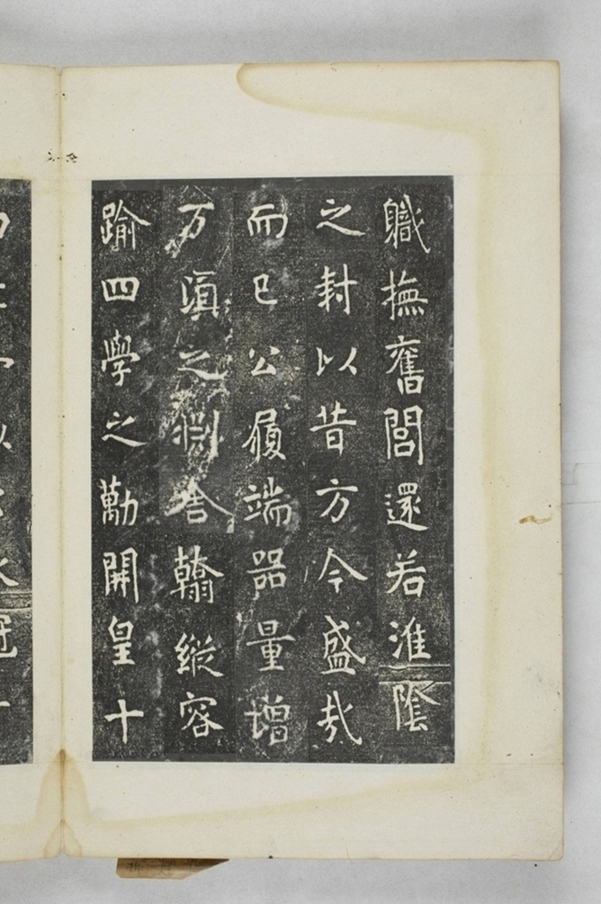 軄撫舊閭還若淮陰
之封以昔方今盛哉
而已公履端器量增
万頃之翰縱容
踰四學之勤開皇十